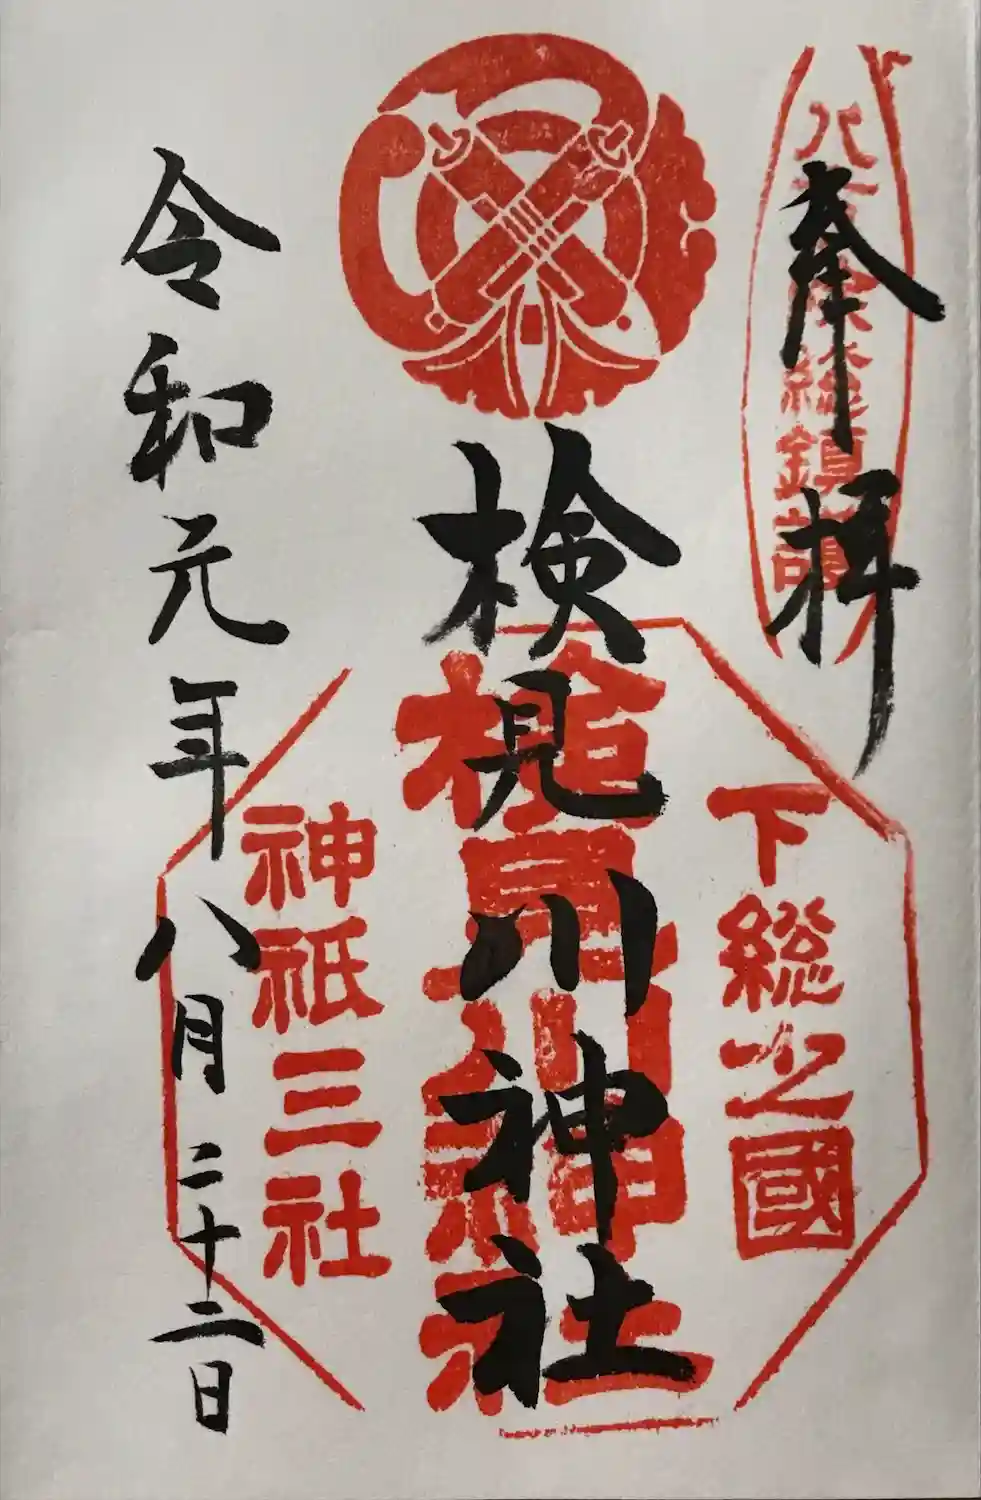 奉拝
下総之國
検見川神社
検見川神社
神祇三社
令和元年八月二十二日